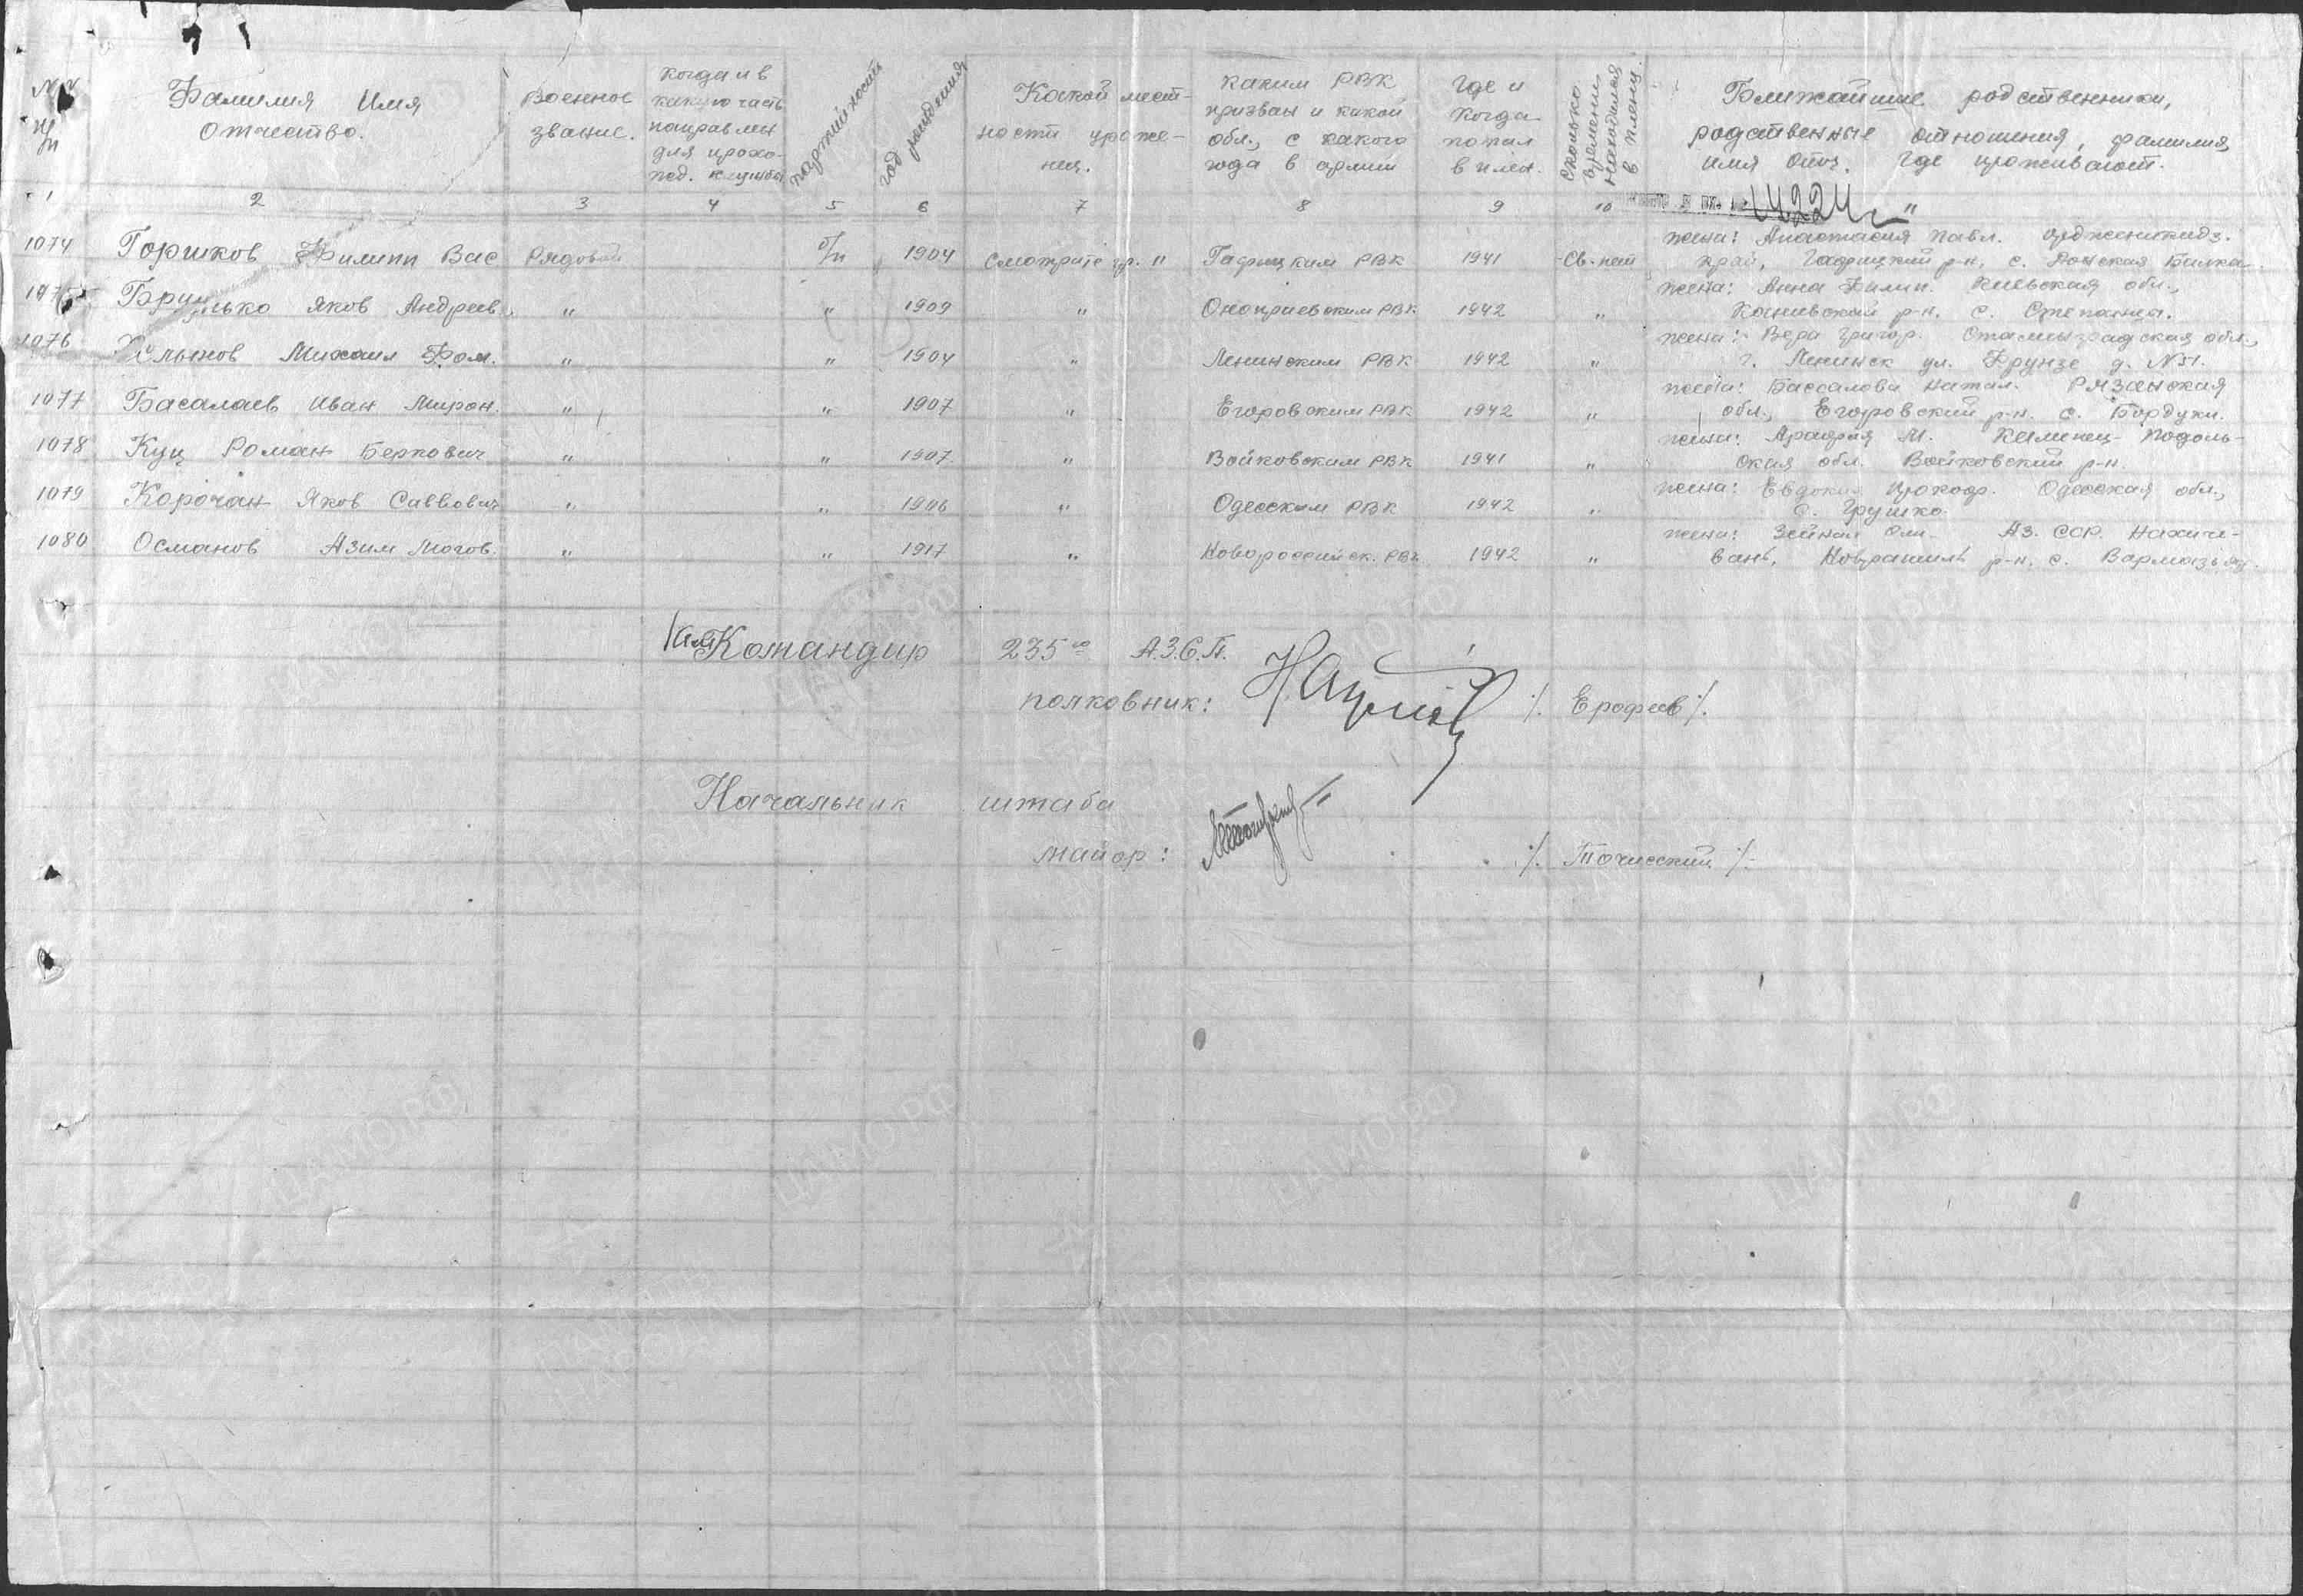 №№ п/п
Фамилия Имя Отчество.
Военное звание.
когда и в какую часть направлен для прохо-
партийность
год рождения
Какой мест-ности уроже-нец.
каким РВК призван и какой обл., с какого года в армии
где и когда попал в плен.
сколько времени находился в плену.
Ближайшие родственники, родственные отношения, фамилия имя отч. где проживают.
1 2 3 4 5 6 7 8 9 10 "
14224
жена: Анастасия Павл. Орджоникидз.
1074 Горшков Филипп Вас Рядовой б/п 1904 смотрите гр. " РВК 1941 Св. нет край, р-н, с. Донская Балка.
жена: Анна Филип. Киевская обл.,
1075 Яков Андреев. " " 1909 " Оноприевским РВК 1942 " Каневский р-н. с. Степанца.
жена: Вера Григор. Сталинградская обл.,
1076 Михаил Фом. " " 1904 " Ленинским РВК 1942 " г. Ленинск ул. Фрунзе д. №51.
жена: Натал. Рязанская
1077 Басалаев Иван Мирон. " " 1907 " Егоровским РВК 1942 " обл., Егоровский р-н. с.
жена: М. Каменец-Подоль-
1078 Куц Роман Беркович " " 1907 " Войковским РВК 1941 " ская обл. Войковский р-н.
жена: Евдокия Прокоф. Одесская обл.,
1079 Корочан Яков Саввович " " 1906 " Одесским РВК 1942 " с. Грушко.
жена: Аз. ССР. Нахиче-
1080 Османов Азим " " 1917 " Новороссийск. РВК 1942 " вань, р-н. с.
Командир 235го А.З.С.П.
полковник: /. Ерофеев /.
Начальник штаба
майор: /. Точисский /.
ЦАМО.РФ
ПАМЯТЬ НАРОДА